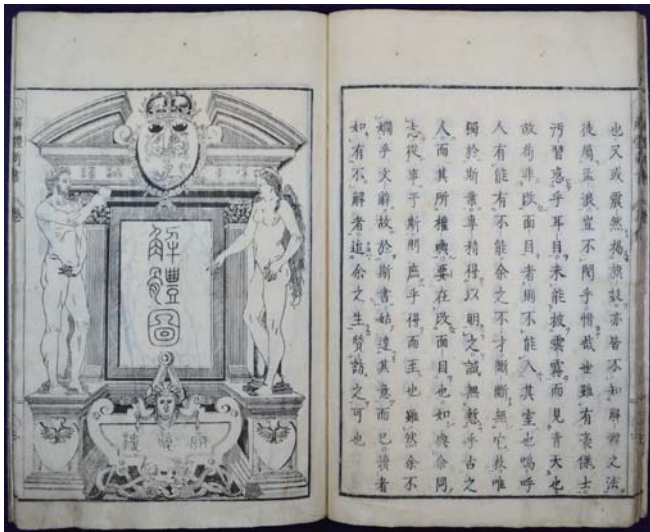 也又或震然揭旗鼓亦皆不知解體之法
徒屬孟浪豈不閔乎惜哉世雖有豪傑士
汚習惑乎耳目未能披雲霧而見青天也
故苟非改面目者則不能入其室也嗚呼
人有能有不能余之不才斷斷無它技唯
獨於斯業專精得以明之誠無慙乎古之
人而其所權輿要在改面目也如與余同
志從事于斯則庶乎得而至也雖然余不
嫺乎文辭故於斯書姑達其意而已讀者
如有不解者造余之生質諸之可也
解體圖
解體新書 卷